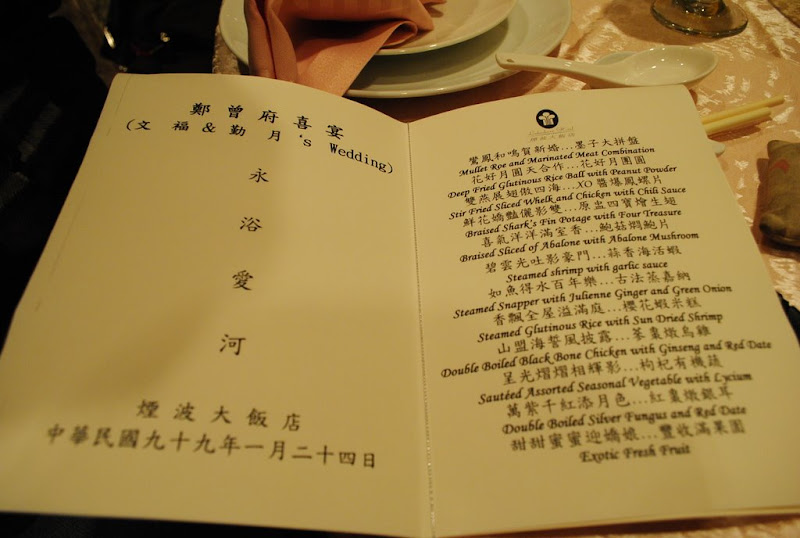 鄭曾府喜宴
(文 福 & 勤 月's Wedding)
永
浴
愛
河
煙波大飯店
中華民國九十九年一月二十四日
煙波大飯店
鸞鳳和鳴賀新婚...墨子大拼盤
Mullet Roe and Marinated Meat Combination
花好月圓天合作...花好月團圓
Deep Fried Glutinous Rice Ball with Peanut Powder
雙燕展翅傲四海...XO醬爆鳳螺片
Stir Fried Sliced Whelk and Chicken with Chili Sauce
鮮花嬌豔儷影雙...原盅四寶燴生翅
Braised Shark's Fin Potage with Four Treasure
喜氣洋洋滿室香...鮑菇燜鮑片
Braised Sliced of Abalone with Abalone Mushroom
碧雲光吐影豪門...蒜香海活蝦
Steamed shrimp with garlic sauce
如魚得水百年樂...古法蒸嘉納
Steamed Snapper with Julienne Ginger and Green Onion
香飄全屋溢滿庭...櫻花蝦米糕
Steamed Glutinous Rice with Sun Dried Shrimp
山盟海誓風披露...蔘棗燉烏雞
Double Boiled Black Bone Chicken with Ginseng and Red Date
呈光熠熠相輝影...枸杞有機蔬
Sautéed Assorted Seasonal Vegetable with Lycium
萬紫千紅添月色...紅棗燉銀耳
Double Boiled Silver Fungus and Red Date
甜甜蜜蜜迎嬌娘...豐收滿果園
Exotic Fresh Fruit